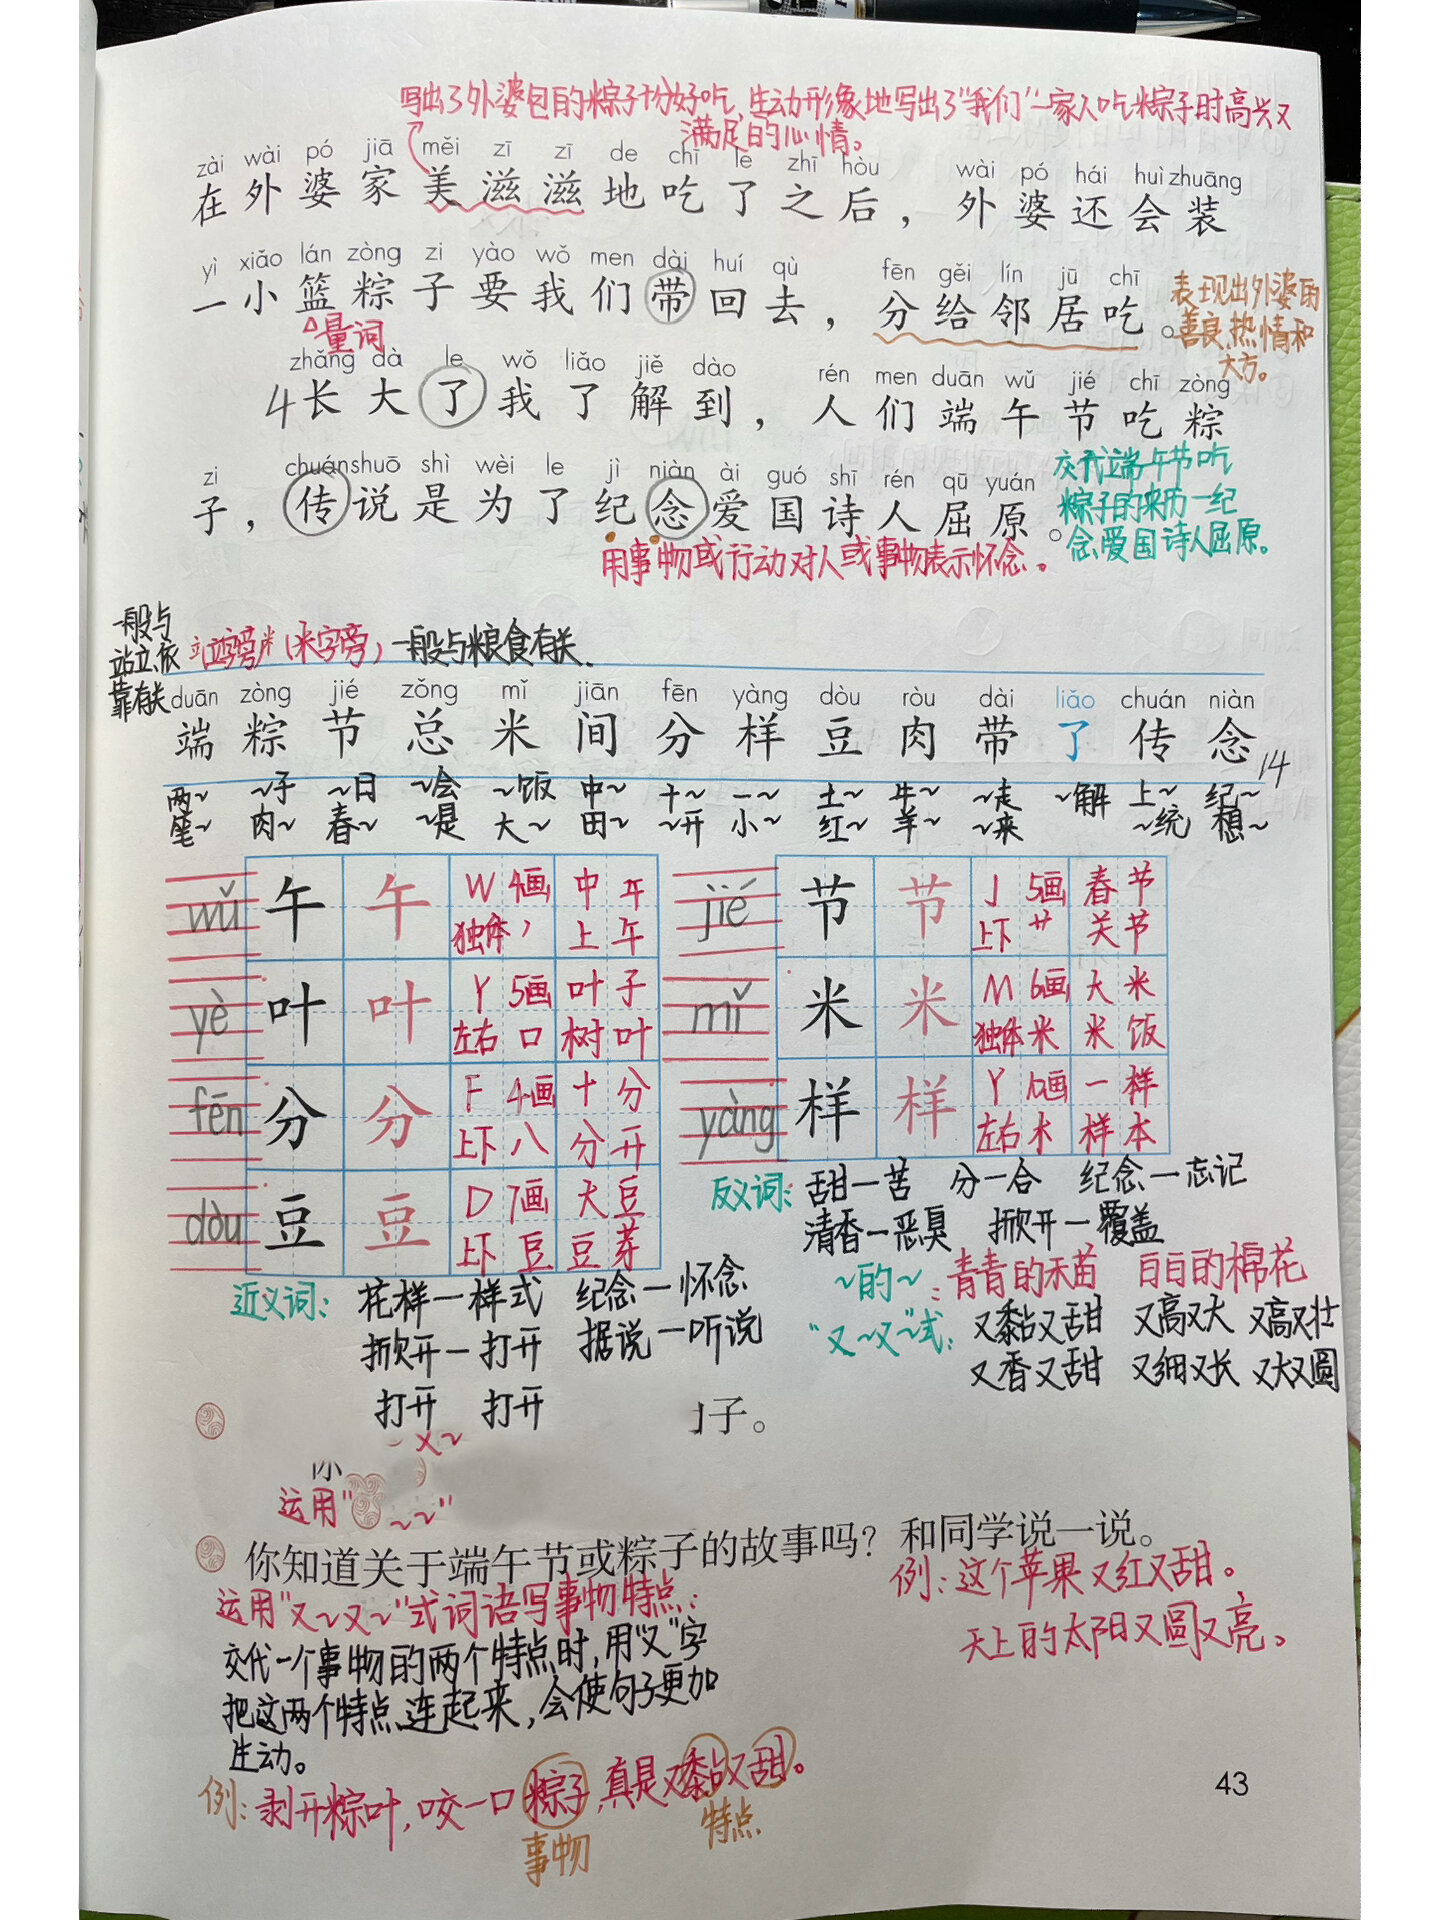 写出了外婆包的粽子十分好吃,生动形象地写出了“我们”一家人吃粽子时高兴又
满足的心情。
zài wài pó jiā měi zī zī de chī le zhī hòu wài pó hái huì zhuāng
在外婆家美滋滋地吃了之后，外婆还会装
yì xiǎo lán zòng zi yào wǒ men dài huí qù fēn gěi lín jū chī
一小篮粽子要我们带回去，分给邻居吃。
表现出外婆的
善良、热情和
大方。
量词
zhǎng dà le wǒ liǎo jiě dào rén men duān wǔ jié chī zòng
4长大了我了解到，人们端午节吃粽
zi chuán shuō shì wèi le jì niàn ài guó shī rén qū yuán
子，传说是为了纪念爱国诗人屈原。
交代端午节吃
粽子的来历—纪
念爱国诗人屈原。
用事物或行动对人或事物表示怀念。
一般与
站立、依
靠有关
立(立字旁)米(米字旁)一般与粮食有关.
duān zòng jié zǒng mǐ jiān fēn yàng dòu ròu dài liǎo chuán niàn
端粽节总米间分样豆肉带了传念
14
两~ ~子 ~日 ~会 ~饭 中~ 十~ 一~ 土~ 牛~ ~走 ~解 上~ 纪~
笔~ 肉~ 春~ ~是 大~ 田~ ~开 小~ 红~ 羊~ ~来 ~统 想~
wǔ 午 午 W 4画 中午
独体 丿 上午
jié 节 节 J 5画 春节
上下 艹 关节
yè 叶 叶 Y 5画 叶子
左右 口 树叶
mǐ 米 米 M 6画 大米
独体 米 米饭
fēn 分 分 F 4画 十分
上下 八 分开
yàng 样 样 Y 10画 一样
左右 木 样本
dòu 豆 豆 D 7画 大豆
上下 豆 豆芽
反义词: 甜—苦 分—合 纪念—忘记
清香—恶臭 掀开—覆盖
近义词: 花样—样式 纪念—怀念
掀开—打开 据说—听说
打开 打开
~的~: 青青的禾苗 白白的棉花
“又~又~”式: 又黏又甜 又高又大 又高又壮
又香又甜 又细又长 又大又圆
子。
又~
运用“
~~”
你知道关于端午节或粽子的故事吗？和同学说一说。
运用“又~又~”式词语写事物特点:
交代一个事物的两个特点时,用“又”字
把这两个特点连起来,会使句子更加
生动。
例:这个苹果又红又甜。
天上的太阳又圆又亮。
例:剥开粽叶,咬一口粽子,真是又黏又甜。
事物
特点
43